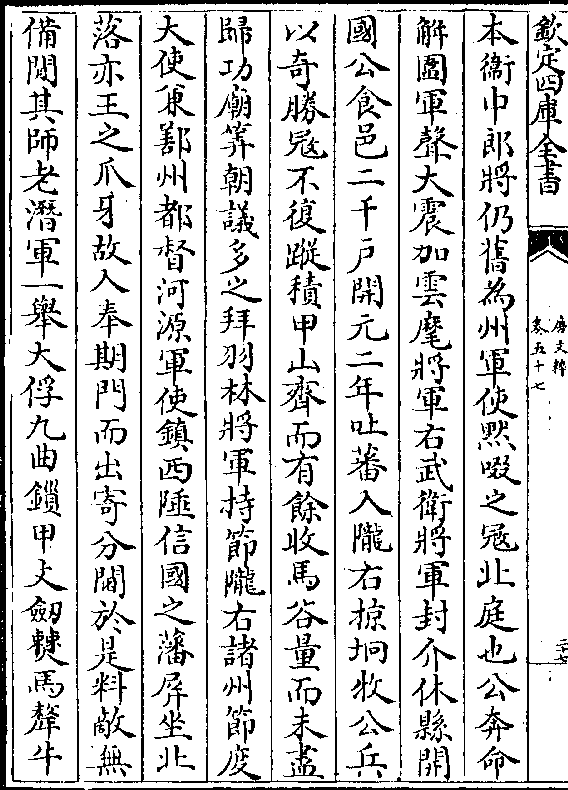 欽定四庫全書
唐文粹
卷五十七
二十七
本衛中郎將仍舊為州軍使黙啜之冦北庭也公奔命
解圍軍聲大震加雲麾將軍右武衛將軍封介休縣開
國公食邑二千戸開元二年吐蕃入隴右掠坰牧公兵
以竒勝冦不復蹤積甲山齊而有餘收馬谷量而未盡
歸功廟筭朝議多之拜羽林將軍持節隴右諸州節度
大使兼鄯州都督河源軍使鎮西陲信國之藩屏坐北
落亦王之爪牙故入奉期門而出寄分閫於是料敵無
備聞其師老潛軍一舉大俘九曲鎻甲文劔㷰馬犛牛